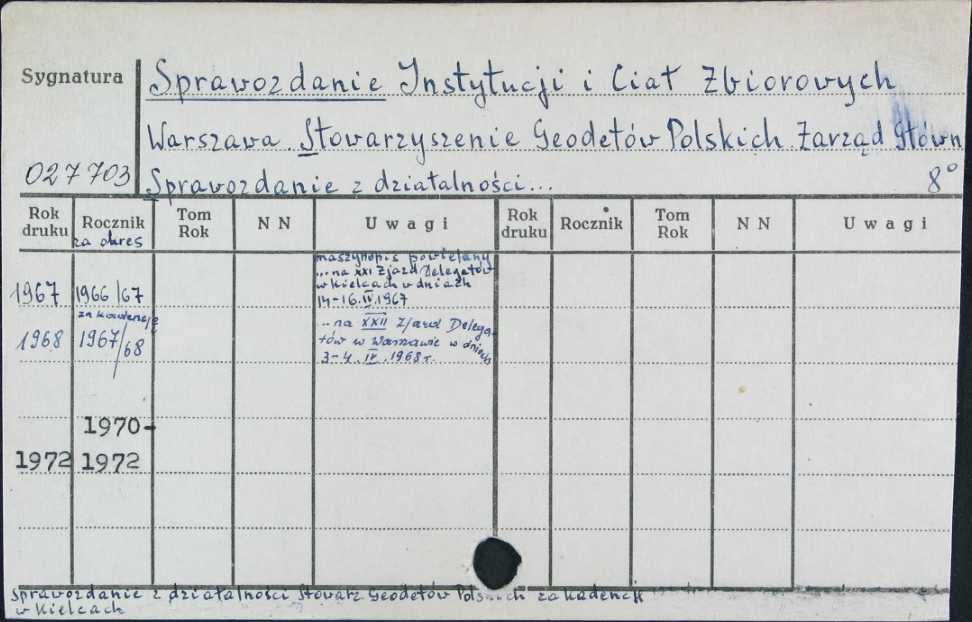 Sygnatura
Sprawozdanie Instytucji i Ciał Zbiorowych
Warszawa. Stowarzyszenie Geodetów Polskich. Zarząd Główn
027703 Sprawozdanie z działalności... 8°
Rok druku Rocznik Tom Rok N N Uwagi Rok druku Rocznik Tom Rok N N Uwagi
za okres
maszynopis powielany
...na XXI Zjazd Delegatów
w Kielcach w dniach
1967 1966/67 14-16.IV.1967
za kadencję
...na XXII Zjazd Delega-
1968 1967/68 tów w Warszawie w dniach
3-4.IV.1968 r.
1970-
1972 1972
Sprawozdanie z działalności Stowarz Geodetów Polskich za kadencję
w Kielcach